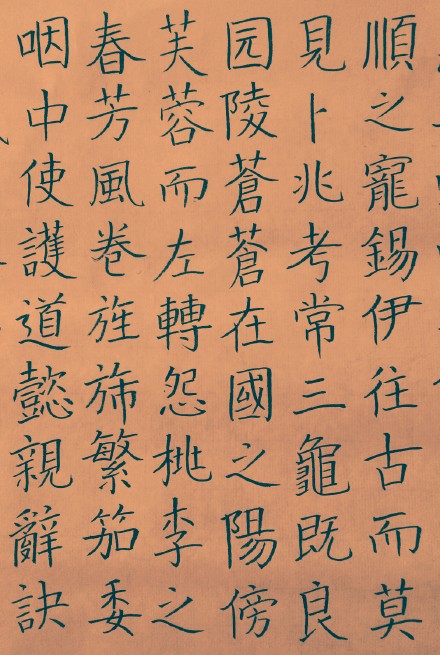 順之寵錫伊往古而莫
見卜兆考常三龜既良
园陵蒼蒼在國之陽傍
芙蓉而左轉怨桃李之
春芳風卷旌旆繁笳委
咽中使護道懿親辭訣